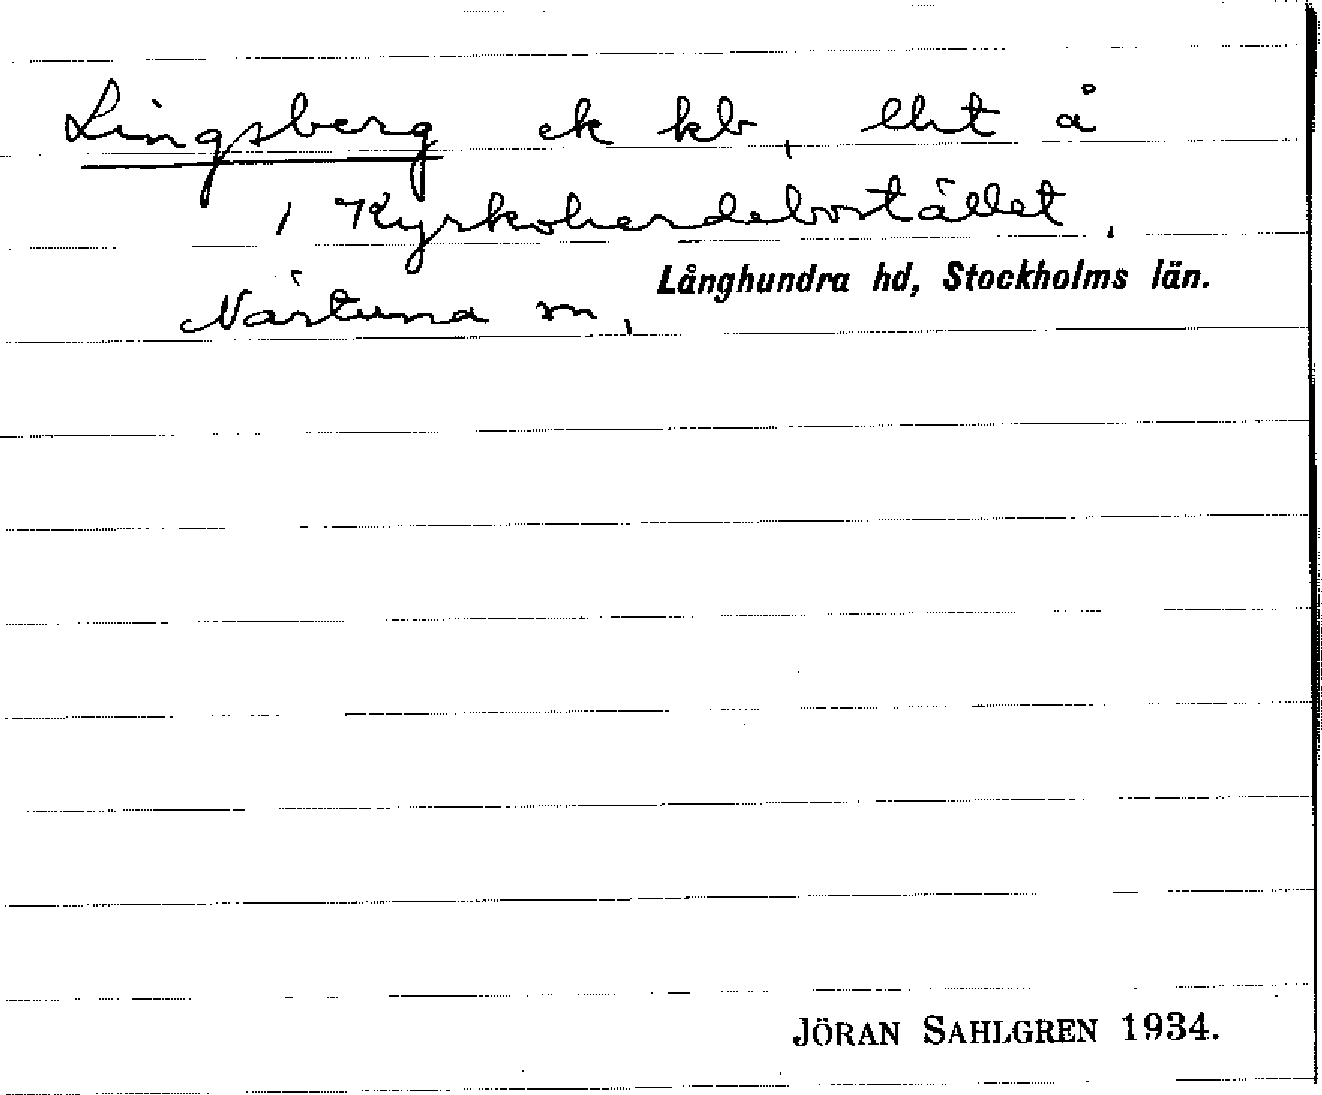 Lingsberg ek kb, lht å
1 Kyrkoherdebostället,
Långhundra hd, Stockholms län.
Närtuna sn,
JÖRAN SAHLGREN 1934.